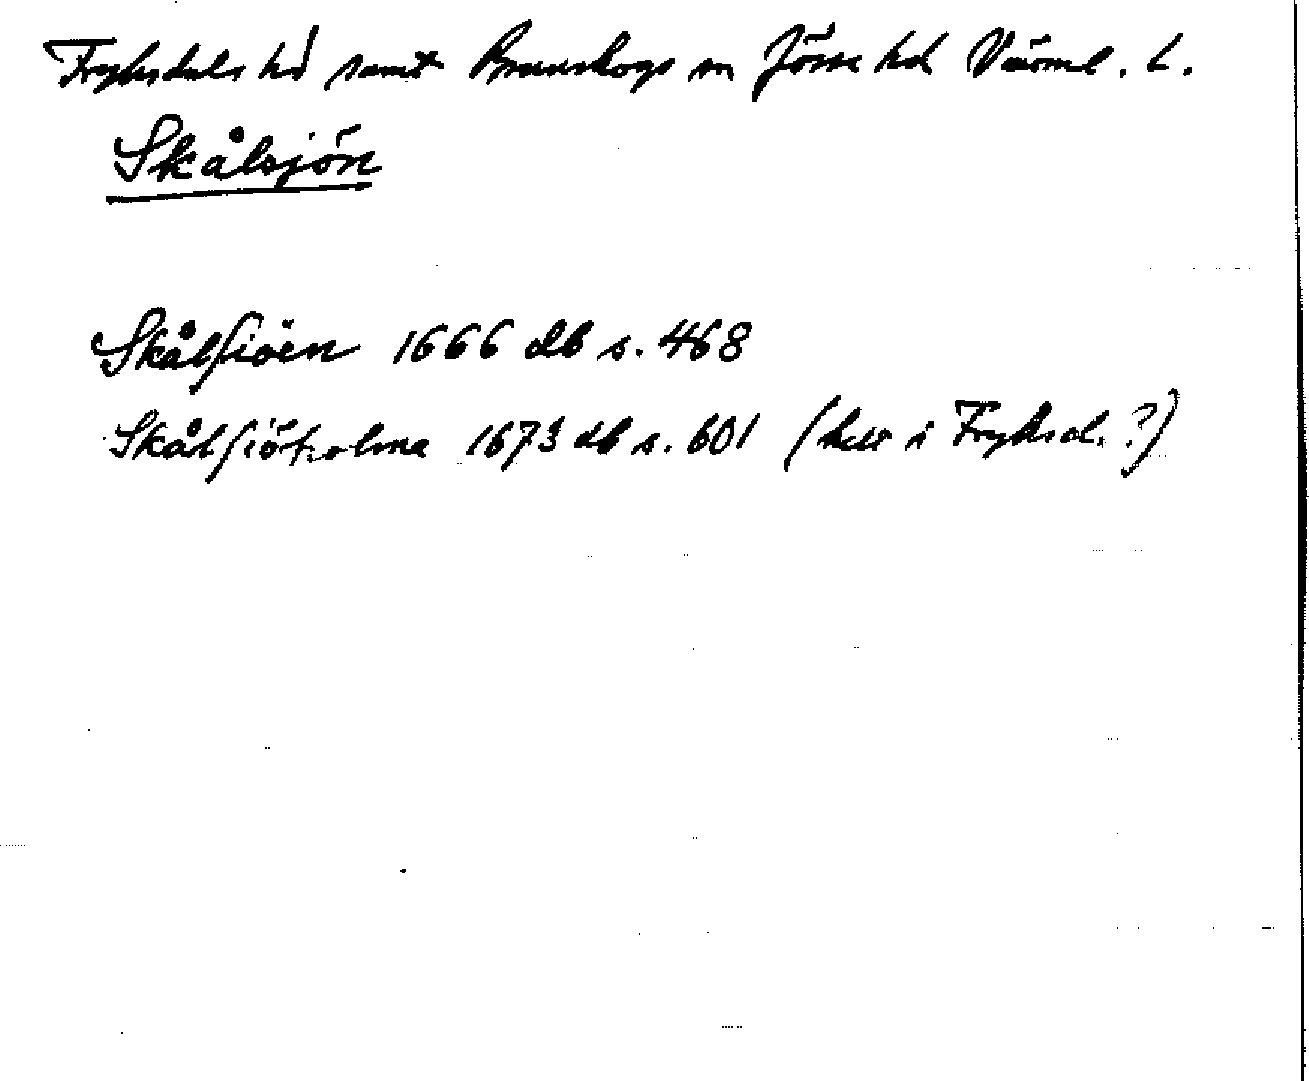 Fryksdals hd samt Brunskogs sn Jösse hd Värml. L.
Skålsjön
Skålsiöen 1666 db s. 468
Skålsiötzolme 1673 db s. 601 ( i Fryksd. ?)